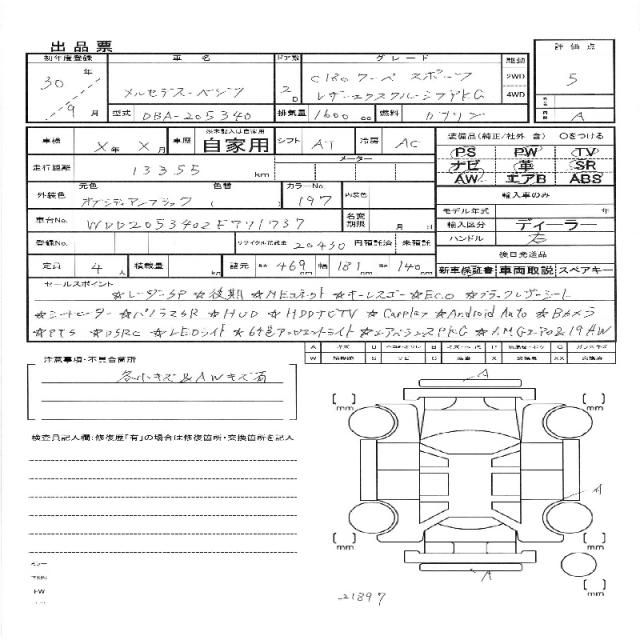 出品票
初年度登録 車名 ドア数 グレード 駆動 評価点
30年 9月 メルセデス・ベンツ 2D C180クーペ スポーツ 2WD 5
レザーエクスクルーシブPKG 4WD
型式 DBA-205340 排気量 1600cc 燃料 ガソリン A
車検 X年X月 車歴 自家用 シフト AT 冷房 AC
装備品(純正/社外 含) ○をつける
PS PW TV
ナビ 革 SR
AW エアB ABS
走行距離 13355 km メーター
外装色 元色 色替 カラーNo. 内装色
オブシディアンブラック ( ) 197
輸入車のみ
モデル年式 年
車台No. WDD2053402F791737 名変期限 月 日
輸入区分 ディーラー
ハンドル 右
登録No. リサイクル預託金 20430 円預託済 未預託
後日発送品
新車保証書 車両取説 スペアキー
定員 4人 積載量 kg 諸元 469cm 幅 181cm 140cm
セールスポイント
☆レーダーSP ☆後期 ☆MEコネクト ☆キーレスゴー ☆ECO ☆ブラックレザーシート
☆シートヒーター ☆パノラマSR ☆HUD ☆HDDナビTV ☆Carplay ☆Android Auto ☆Bカメラ
☆PTS ☆DSRC ☆LEDライト ☆64色アンビエントライト ☆エアバランスPKG ☆AMGエアロ&19AW
注意事項・不具合箇所
各小キズ&AWキズ有
検査員記入欄:修復歴「有」の場合は修復箇所・交換箇所を記入
A
[ ] mm [ ] mm
A
[ ] mm [ ] mm
A
[ ] mm
21897